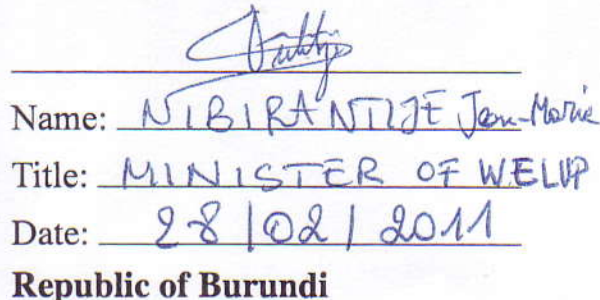 Name: NIBIRANTIJE Jean-Marie
Title: MINISTER OF WELUP
Date: 28/02/2011
Republic of Burundi